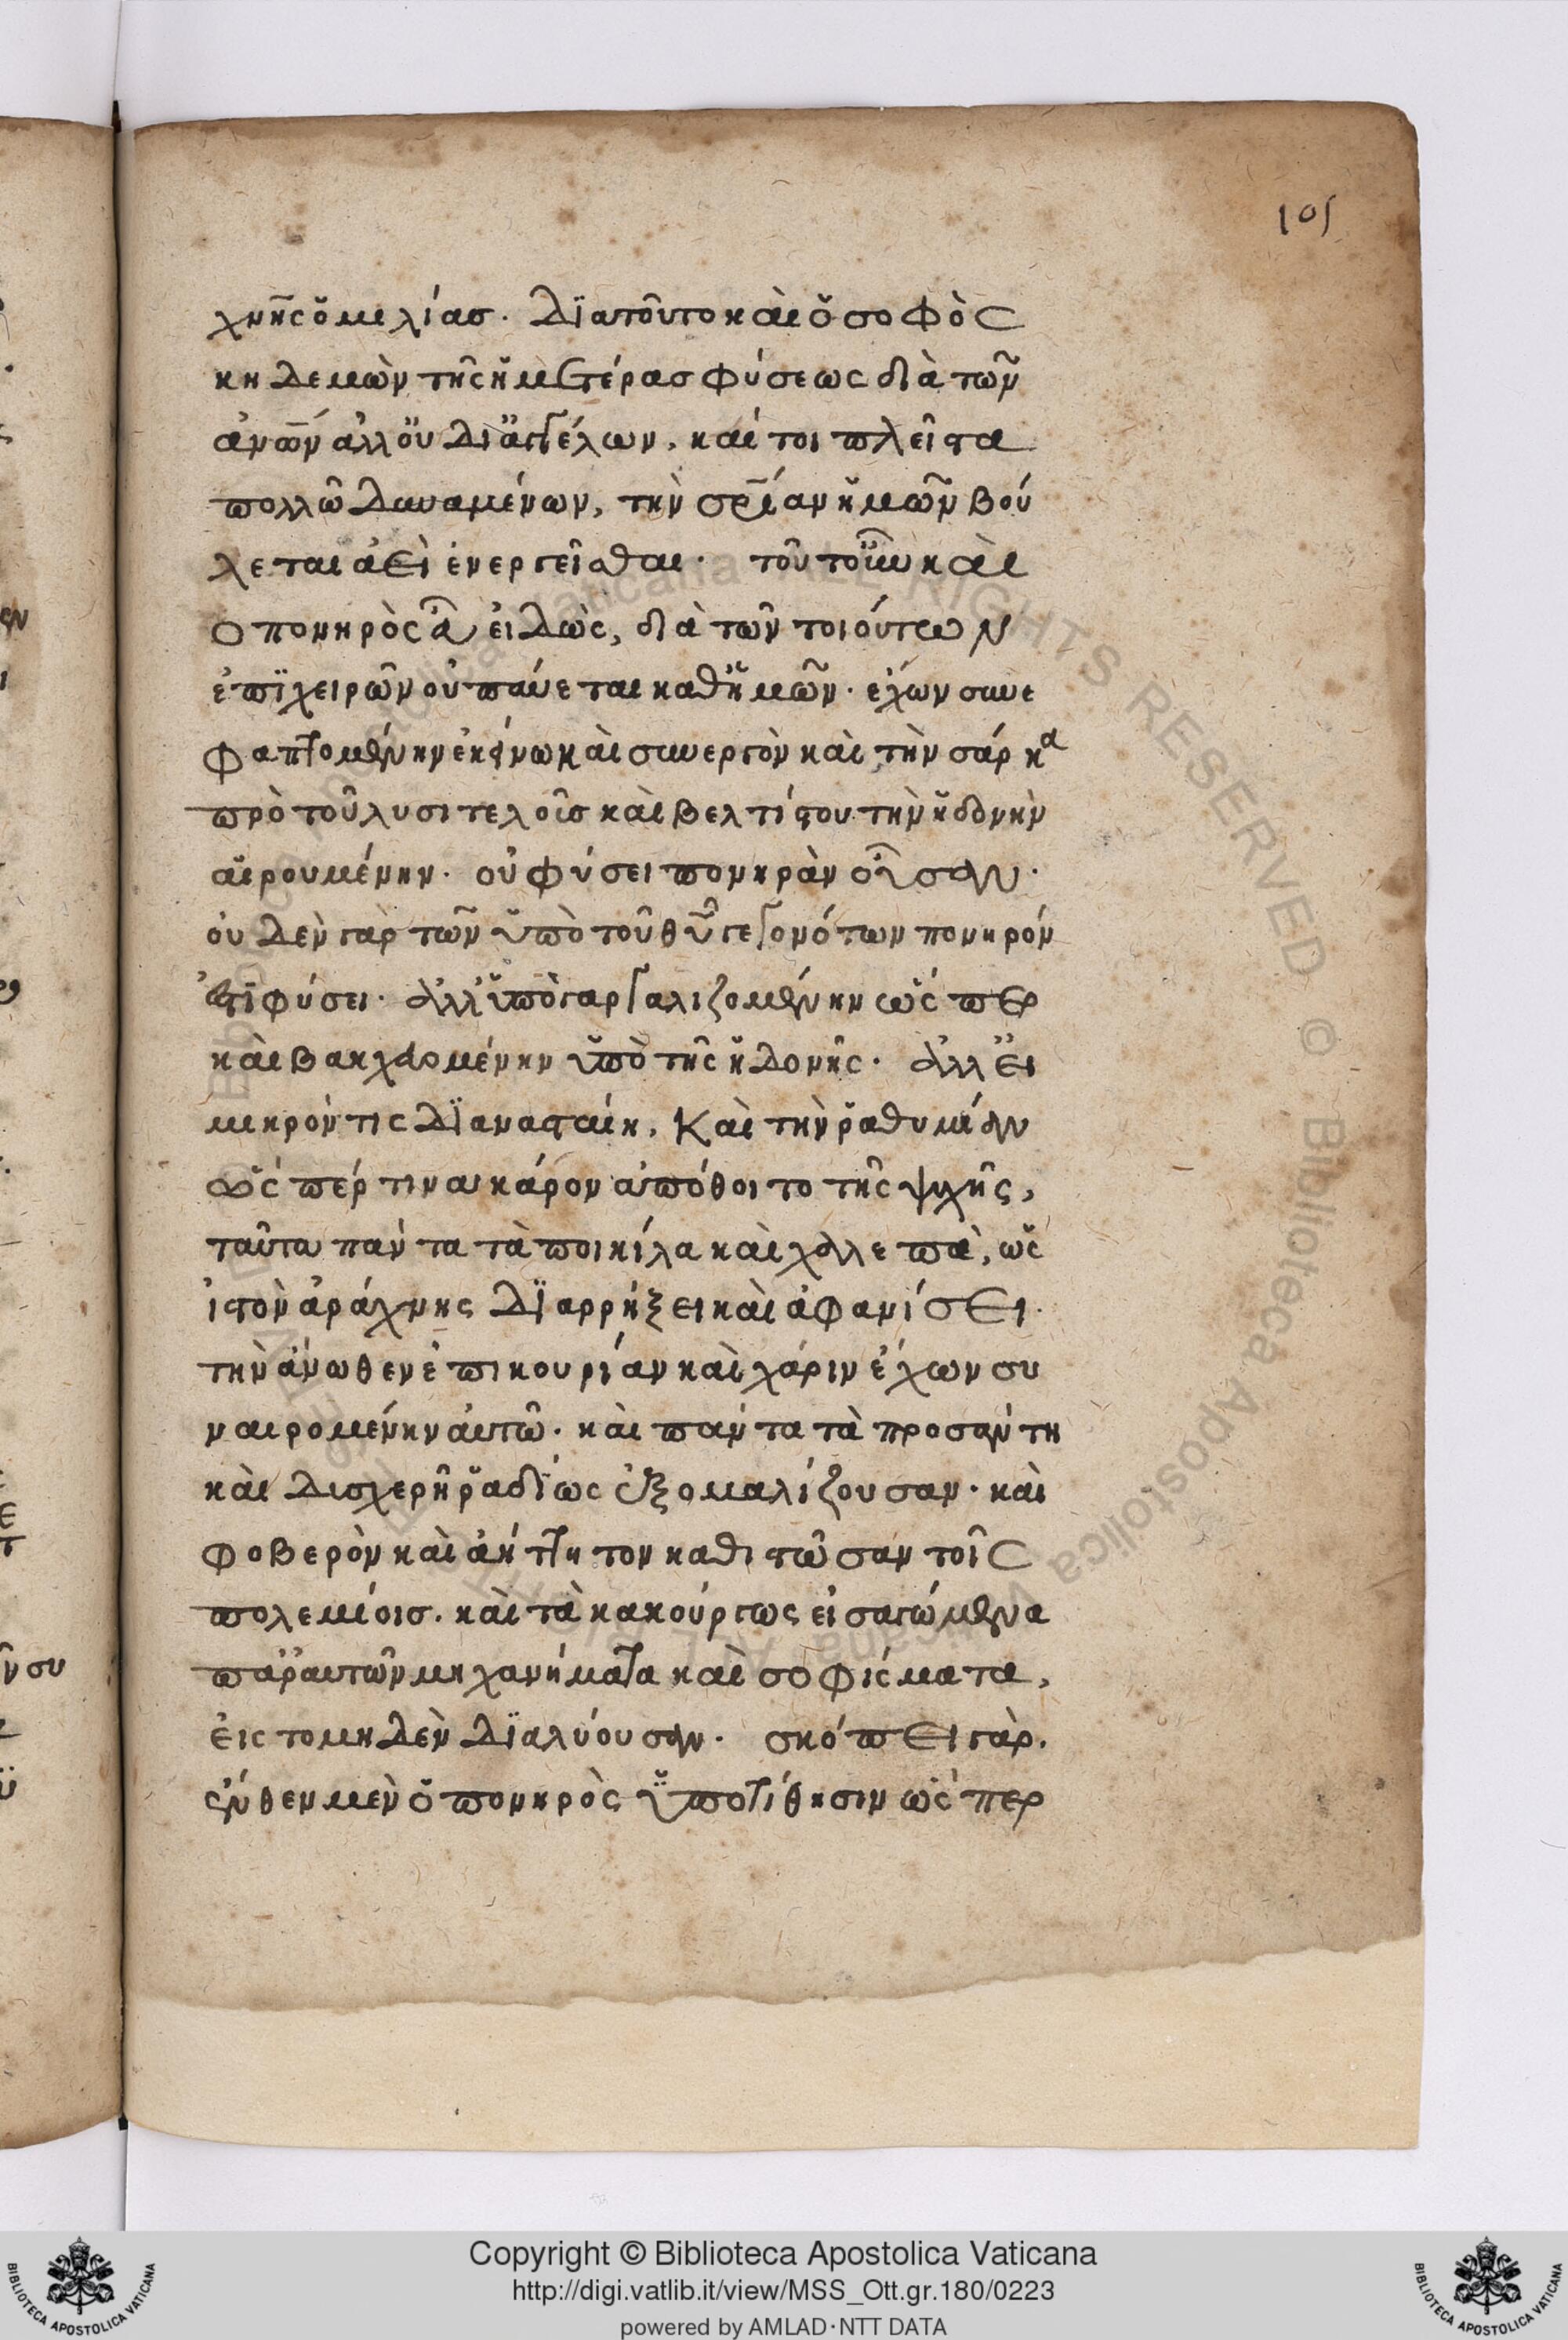 105
χνῆς ὁμιλίας. Διατοῦτο καὶ ὁ σοφὸς
κηδεμὼν τῆς ἡμετέρας φύσεως διὰ τῶν
ἀνῶν ἀλλ' οὐ δι' ἀγγέλων, καί τοι πλεῖστα
πολλῶ δυναμένων, τὴν σρίαν ἡμῶν βού
λεται ἀεὶ ἐνεργεῖσθαι. τοῦτο καὶ
ὁ πονηρὸς εἰδὼς, διὰ τῶν τοιούτων
ἐπιχειρῶν οὐ παύεται καθ' ἡμῶν. ἔχων συνε
φαπτομένην ἐκείνω καὶ συνεργὸν καὶ τὴν σάρκα
πρὸ τοῦ λυσιτελοῦς καὶ βελτίστου τὴν ἡδονὴν
αἱρουμένην. οὐ φύσει πονηρὰν οὖσαν.
οὐδὲν γὰρ τῶν ὑπὸ τοῦ θυ γεγονότων πονηρόν
ἐστι φύσει. ἀλλ' ὑπὸ γαργαλιζομένην ὥσπερ
καὶ βακχευομένην ὑπὸ τῆς ἡδονῆς. ἀλλ' εἰ
μικρόν τις διανασταίη, Καὶ τὴν ῥαθυμίαν
ὥσπέρ τινα κάρον ἀπόθοιτο τῆς ψυχῆς,
ταῦτα πάντα τὰ ποικίλα καὶ χαλεπὰ, ὡς
ἱστὸν ἀράχνης διαρρήξει καὶ ἀφανίσει.
τὴν ἄνωθεν ἐπικουρίαν καὶ χάριν ἔχων συ
ναιρομένην αὐτῶ. καὶ πάντα τὰ προσάντη
καὶ δυσχερῆ ῥαδίως ἐξομαλίζουσαν. καὶ
φοβερὸν καὶ ἀήττητον καθιστῶσαν τοῖς
πολεμίοις. καὶ τὰ κακούργως εἰσαγώμενα
παρ' αὐτῶν μηχανήματα καὶ σοφίσματα,
εἰς το μηδὲν διαλύουσαν. σκόπει γάρ.
ἔνθεν μὲν ὁ πονηρὸς ὑποτίθησιν ὥσπερ
ν συ
Copyright © Biblioteca Apostolica Vaticana
http://digi.vatlib.it/view/MSS_Ott.gr.180/0223
powered by AMLAD·NTT DATA
BIBLIOTECA APOSTOLICA VATICANA
BIBLIOTECA APOSTOLICA VATICANA